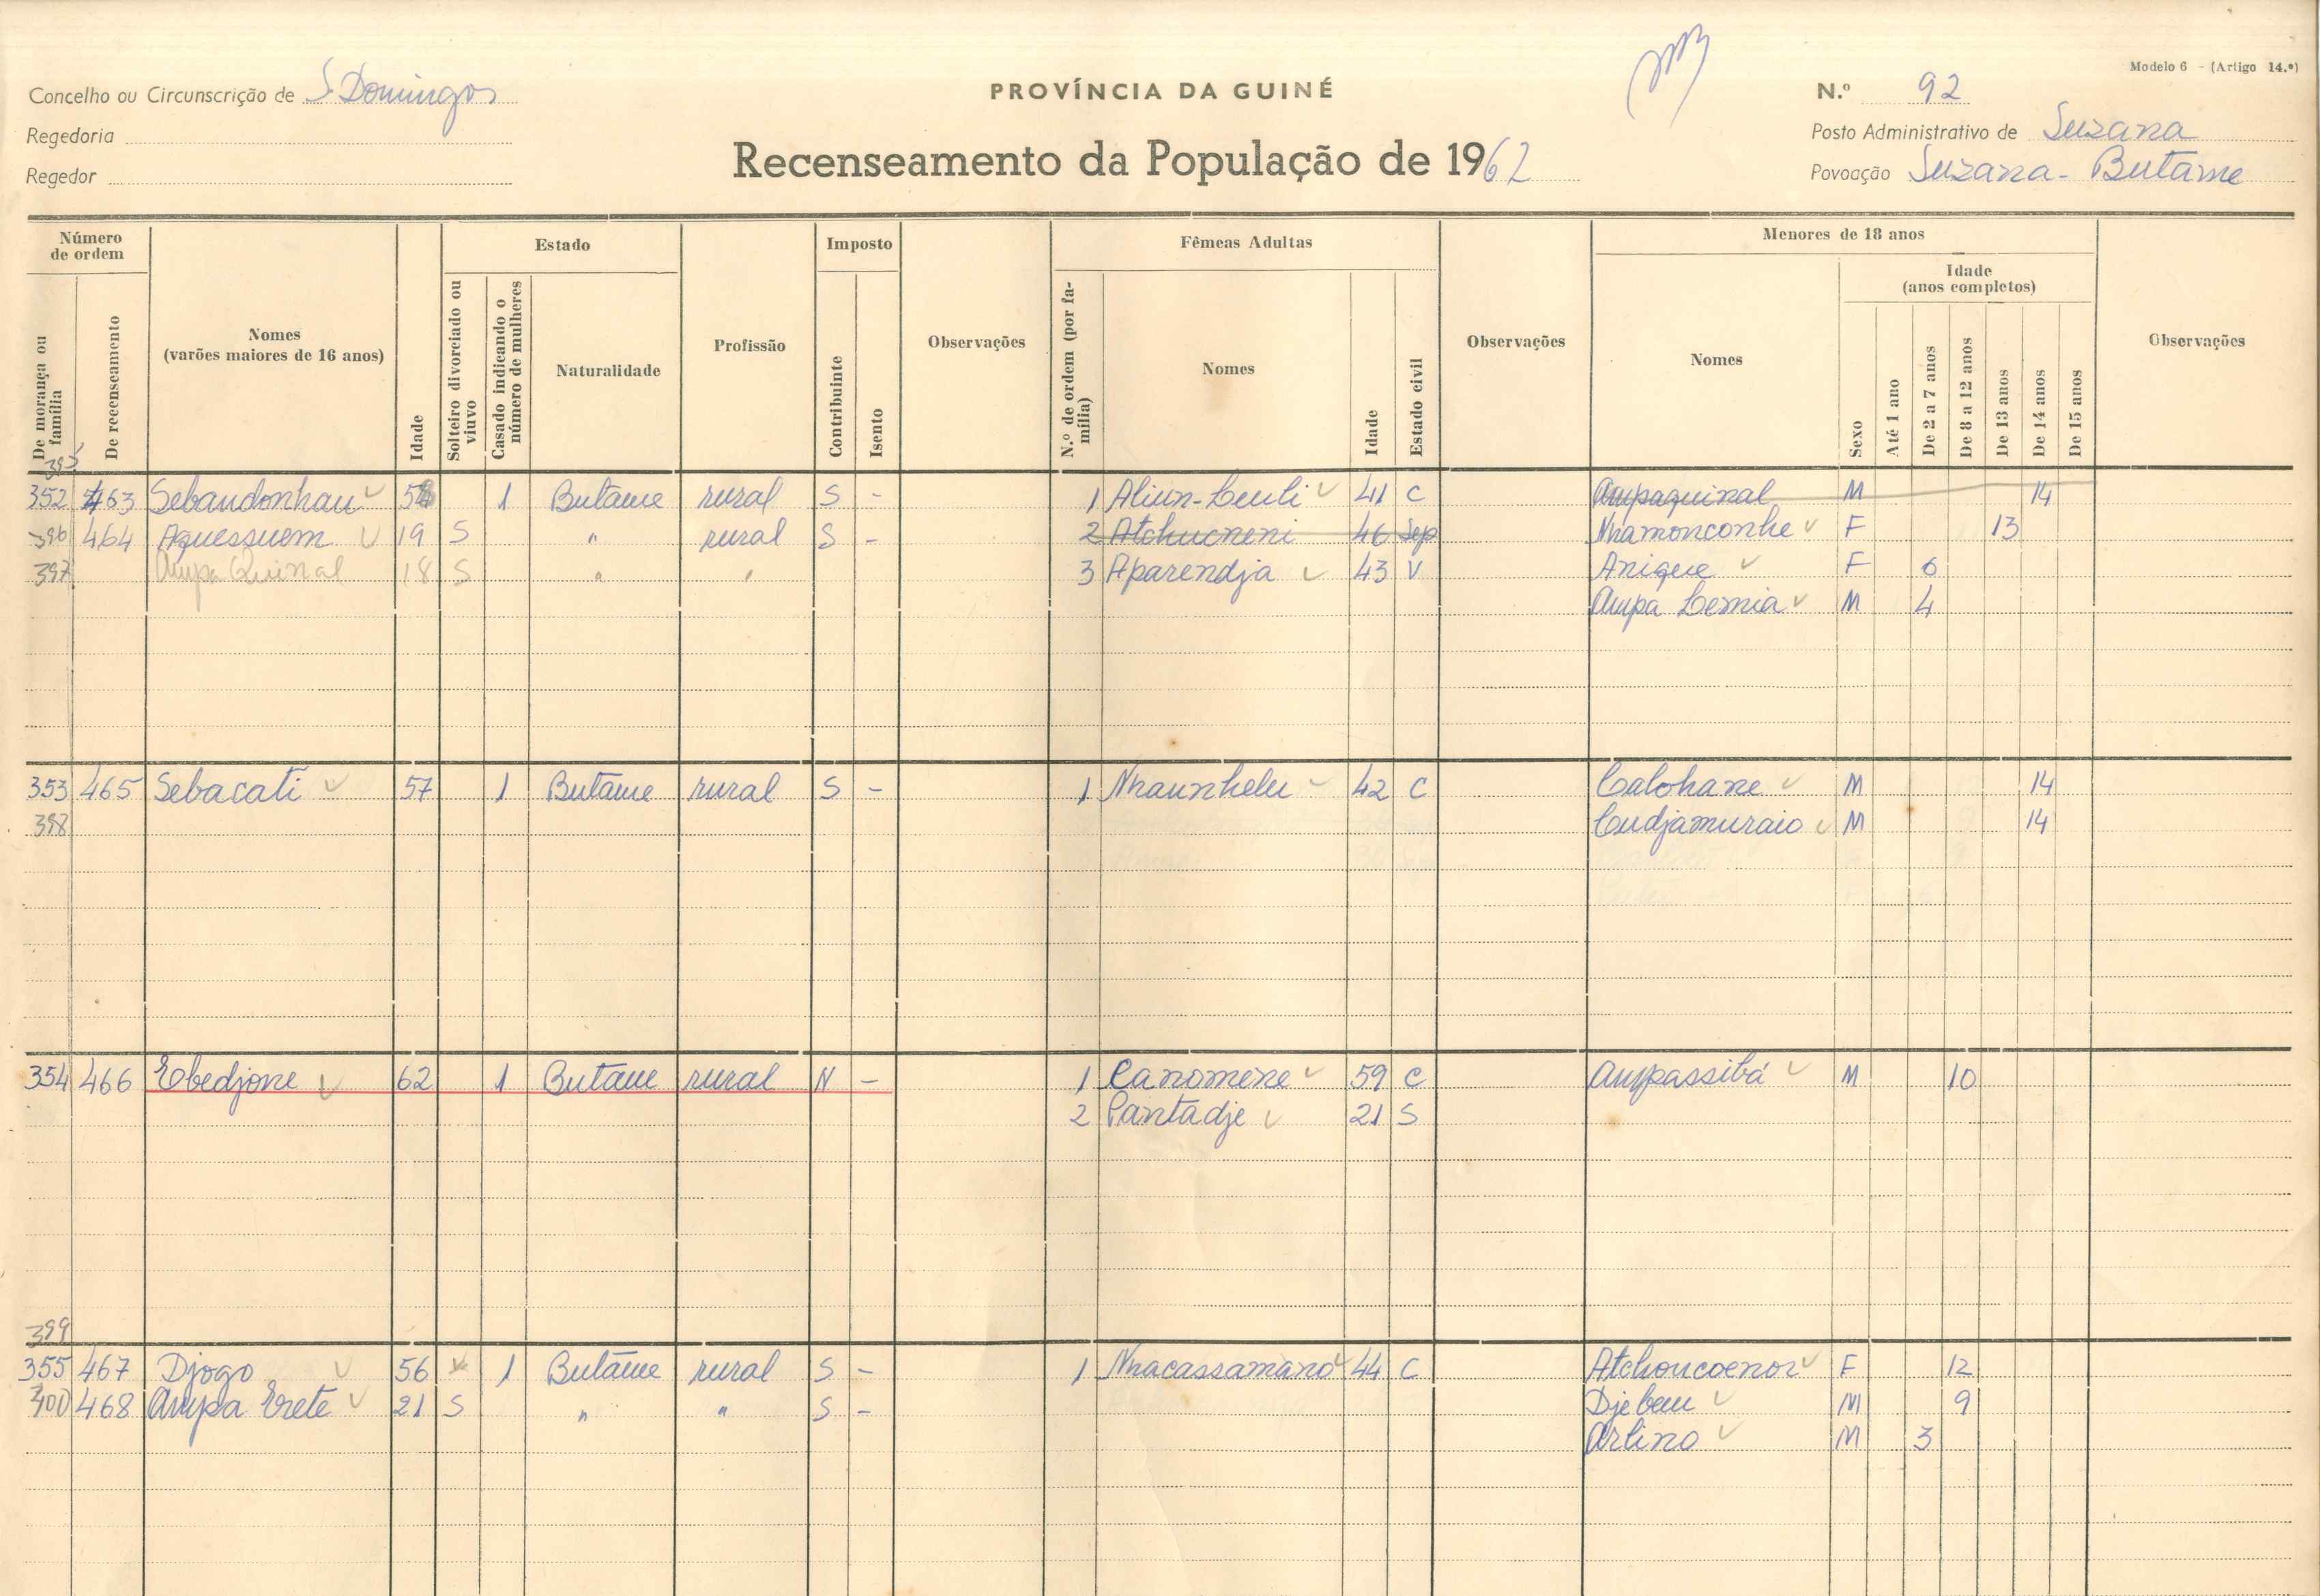 Modelo 6 - (Artigo 14.º)
Concelho ou Circunscrição de S. Domingos
PROVÍNCIA DA GUINÉ
N.º 92
Regedoria
Posto Administrativo de Suzana
Regedor
Recenseamento da População de 1962
Povoação Suzana - Butame
Número de ordem
De morança ou família
De recenseamento
Nomes (varões maiores de 16 anos)
Idade
Estado
Solteiro divorciado ou viuvo
Casado indicando o número de mulheres
Naturalidade
Profissão
Imposto
Contribuinte
Isento
Observações
Fêmeas Adultas
N.º de ordem (por família)
Nomes
Idade
Estado civil
Observações
Menores de 18 anos
Nomes
Sexo
Idade (anos completos)
Até 1 ano
De 2 a 7 anos
De 8 a 12 anos
De 13 anos
De 14 anos
De 15 anos
Observações
395
352 463 Sebaudonhau 1 Butame rural S - 1 Aliun-Leuli 41 C Ampaquinal M 14
396 464 Aquessuem 19 S " rural S - 2 Atchucneni 46 Sep Nhamonconhe F 13
397 Ampa Quinal 18 S " " 3 Aparendja 43 V Anique F 6
Ampa Lemia M 4
353 465 Sebacati 57 1 Butame rural S - 1 Nhaunhelu 42 C Calohane M 14
398 Cudjamuraio M 14
354 466 Ebedjone 62 1 Butame rural N - 1 Canomene 59 C Ampassibá M 10
2 Pantadje 21 S
399
355 467 Djogo 56 1 Butame rural S - 1 Nhacassamano 44 C Atchoucoenor F 12
400 468 Ampa Erete 21 S " " S - Djebeu M 9
Arlino M 3